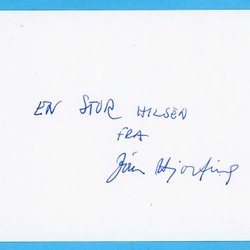 EN STOR HILSEN
FRA
Jörn Hjorting